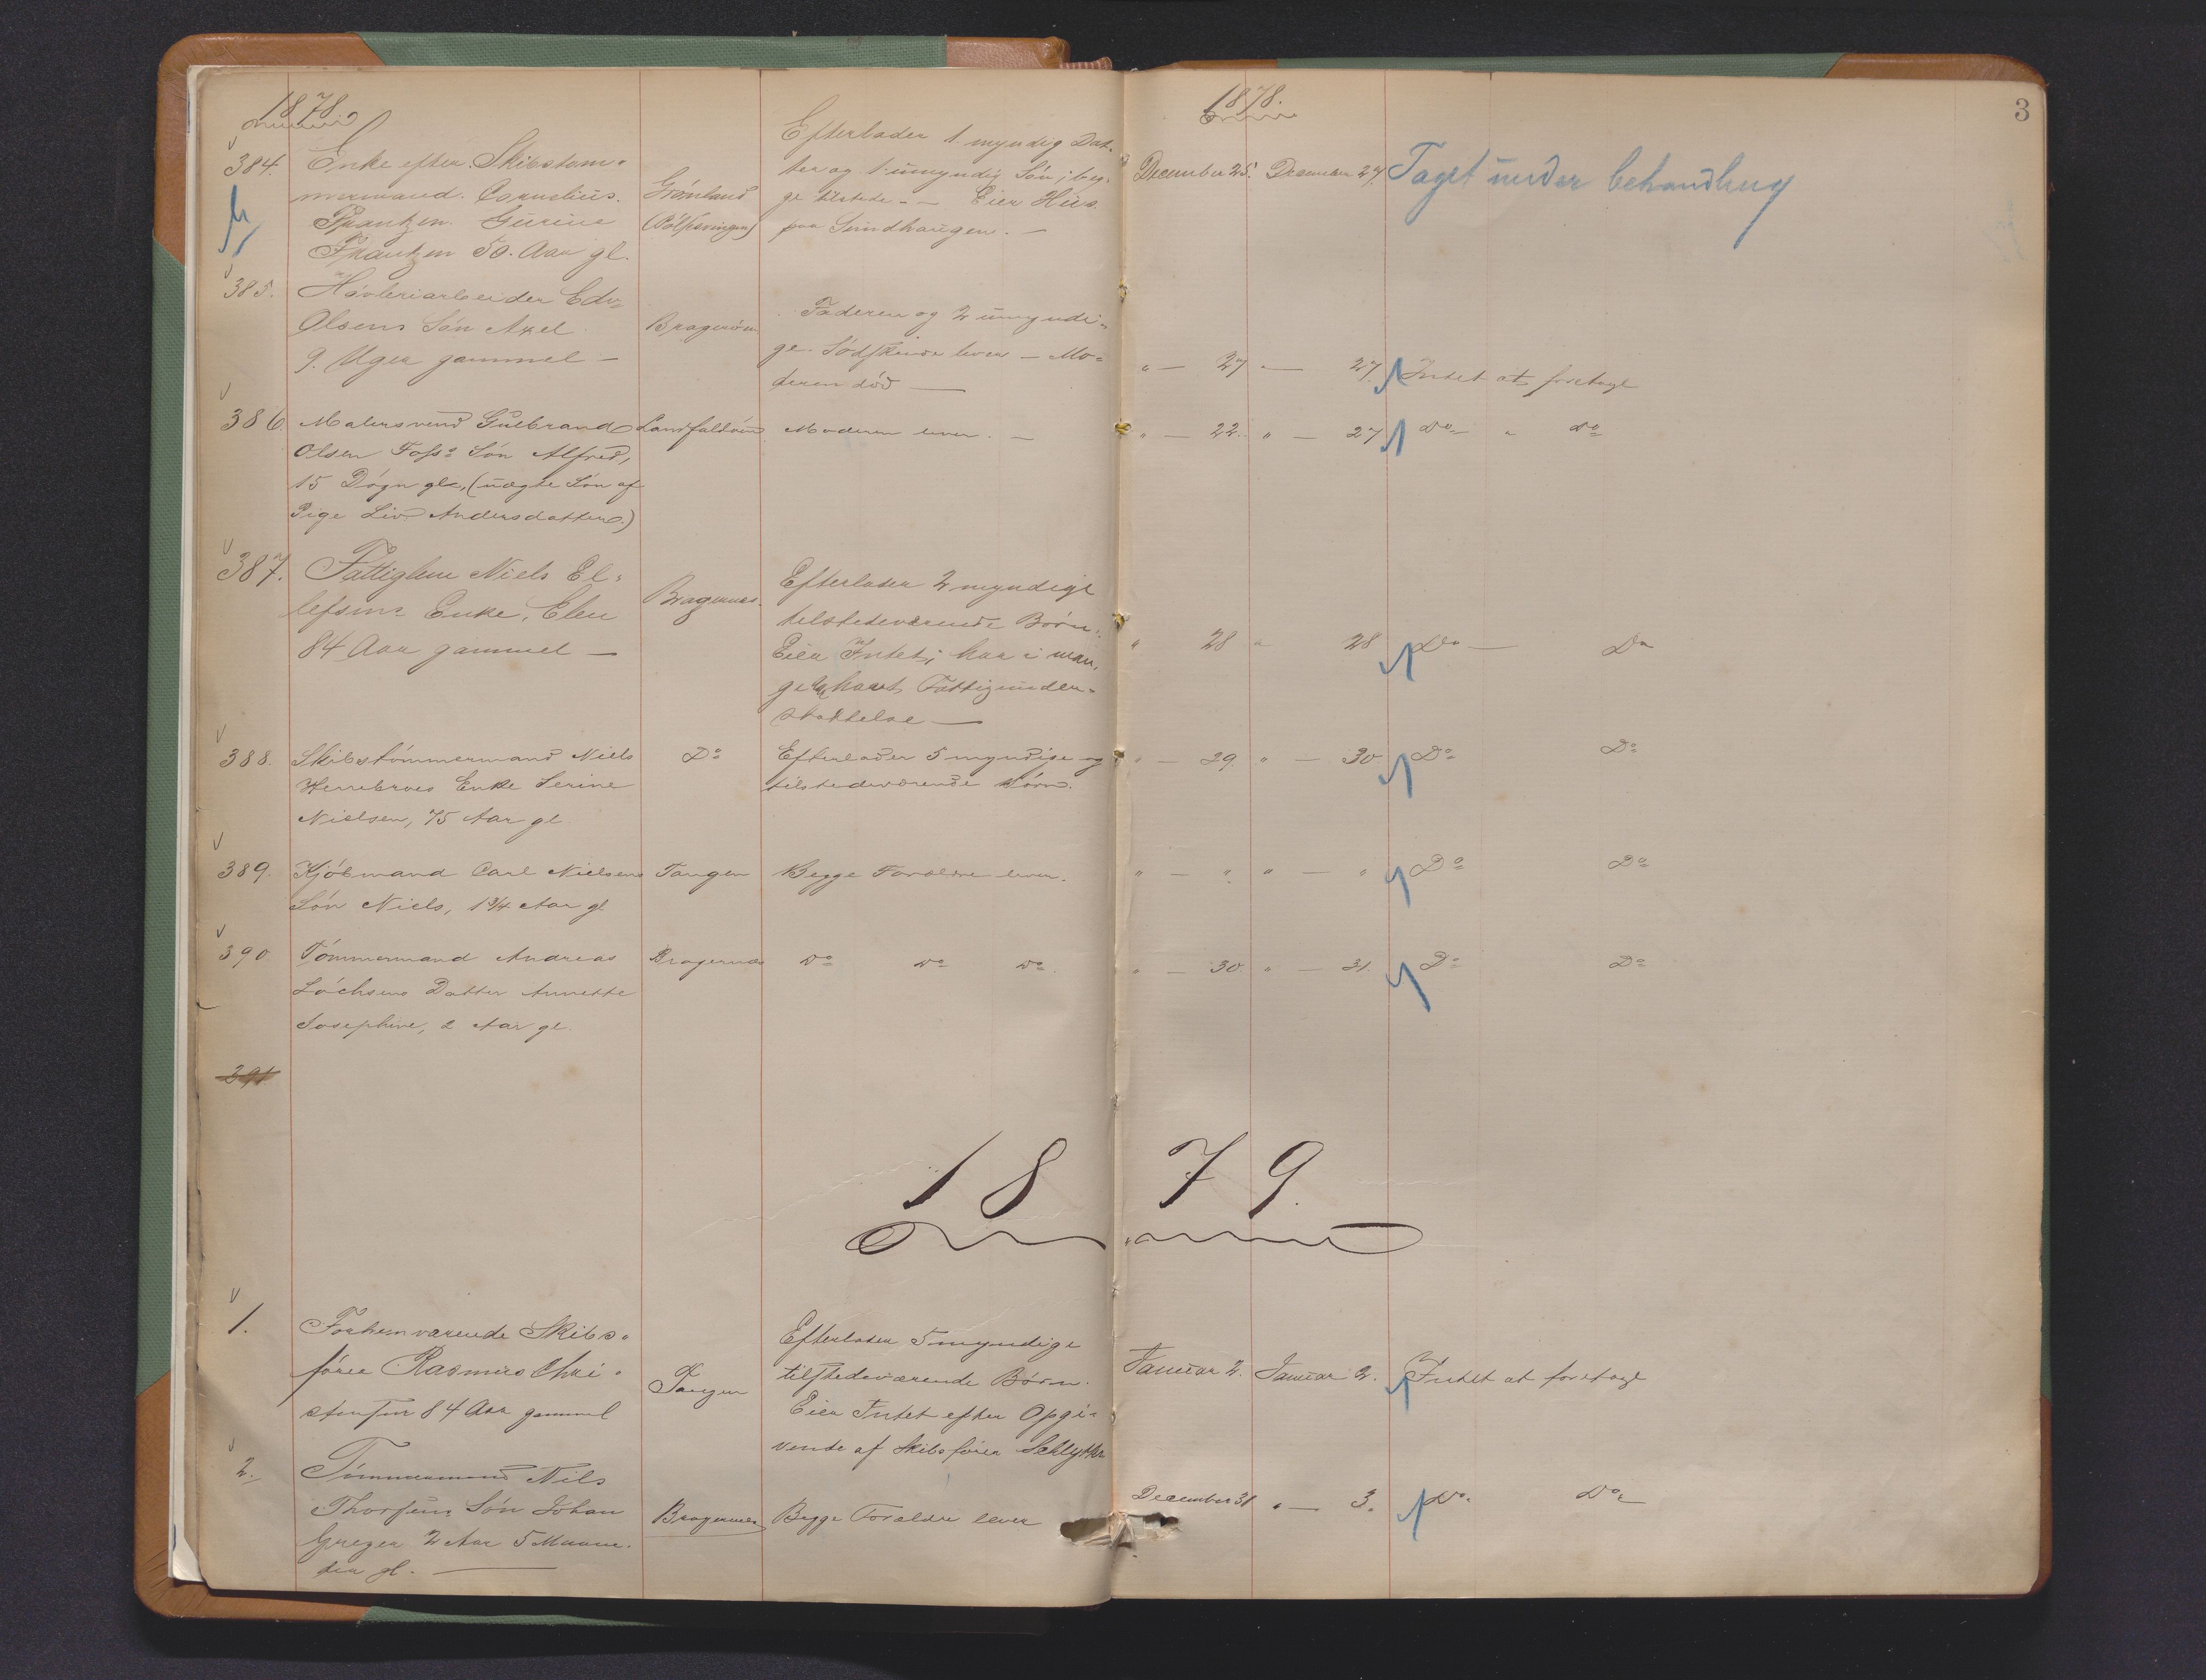 1878.
1878.
3
384.
Enke efter Skibstøm-
mermand Cornelius
Frantzen Gurine
Frantzen 50. Aar gl.
Grønland
Efterlader 1 myndig Dat-
ter og 1 umyndig Søn; beg-
ge tilstede. - Eier Hus
paa Sundhaugen. -
December 25. December 27.
Taget under behandling
385.
Høvleriarbeider Edv.
Olsens Søn Axel
9. Uger gammel -
Bragernæs
Faderen og 2 umyndi-
ge Sødskende lever - Mo-
deren død -
" - 27 " - 27.
Intet at foretage
386.
Malersvend Gulbrand
Olsen Foss' Søn Alfred,
15 Døgn gl., (uægte Søn af
Pige Liv Andersdatter.)
Landfaldøen
Moderen lever. -
" - 22. " - 27
Do " Do
387.
Fattiglem Niels El-
lefsens Enke, Elen
84 Aar gammel -
Bragernæs.
Efterlader 2 myndige
tilstedeværende Børn.
Eier Intet; har i man-
ge Aar havt Fattigunder-
støttelse -
" 28 " 28
Do - Do
388.
Skibstømmermand Niels
Herrebroes Enke Serine
Nielsen, 75 Aar gl
Do
Efterlader 5 myndige og
tilstedeværende Børn.
" - 29. " - 30
Do Do
389.
Kjøbmand Carl Nielsens
Søn Niels, 1 3/4 Aar gl
Tangen
Begge Forældre lever.
" - " " - "
Do Do
390
Tømmermand Andreas
Løchsens Datter Annette
Josephine, 2 Aar gl.
Bragernæs
Do Do Do.
" - 30. " - 31.
Do Do
391
1879.
1.
Forhenværende Skibs-
fører Rasmus Chri-
stensen 84 Aar gammel
Tangen
Efterlader 5 myndige
tilstedeværende Børn.
Eier Intet efter Opgi-
vende af Skibsfører Schlytter
Januar 2. Januar 2.
Intet at foretage
2.
Tømmermand Nils
Thorsens Søn Johan
Greger 2 Aar 5 Maane-
der gl. -
Bragernæs
Begge Forældre lever
December 31 " - 3.
Do. Do